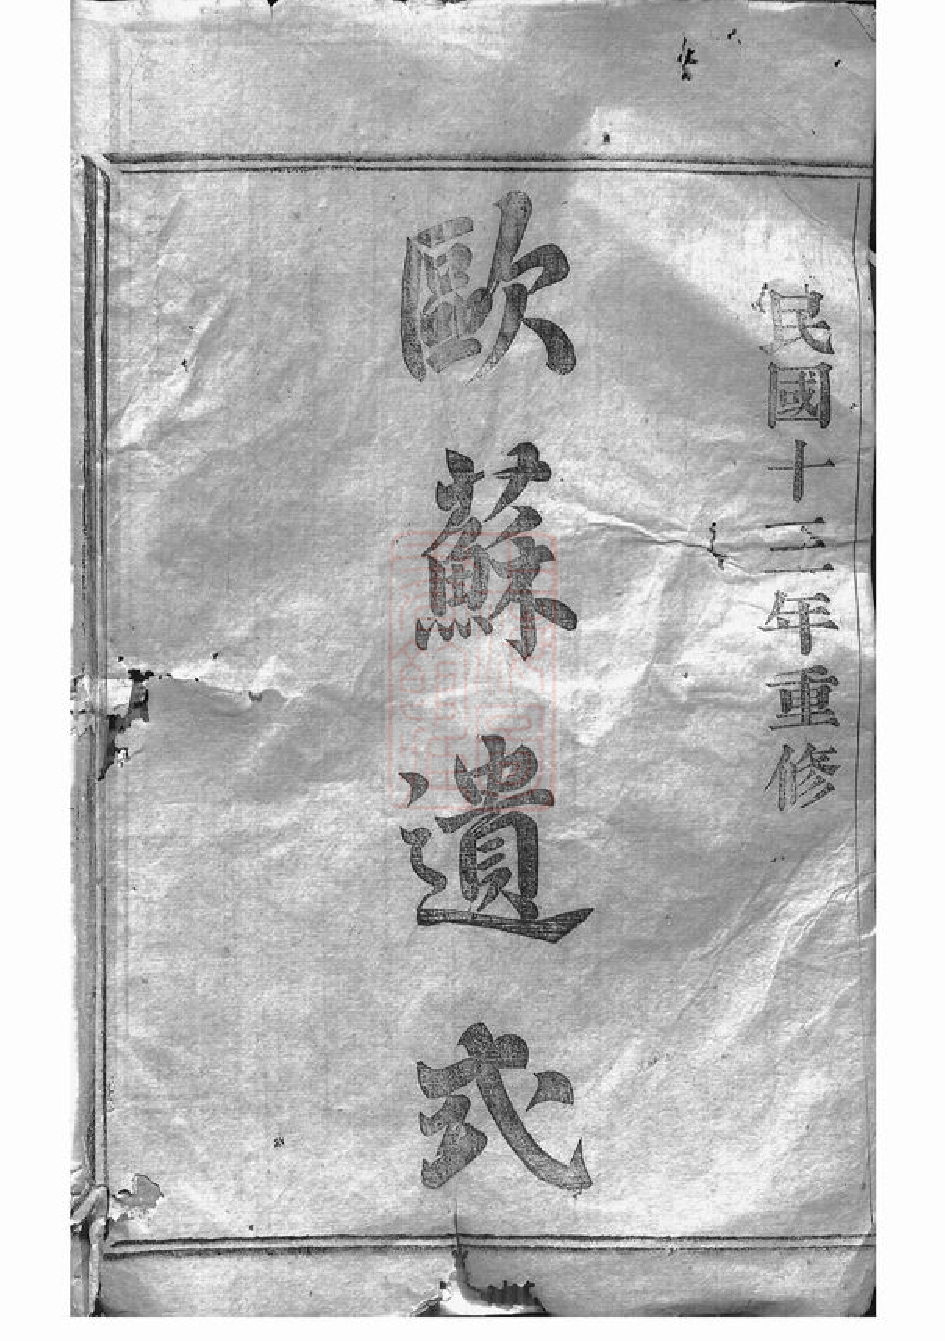 民國十三年重修
歐蘇遺式